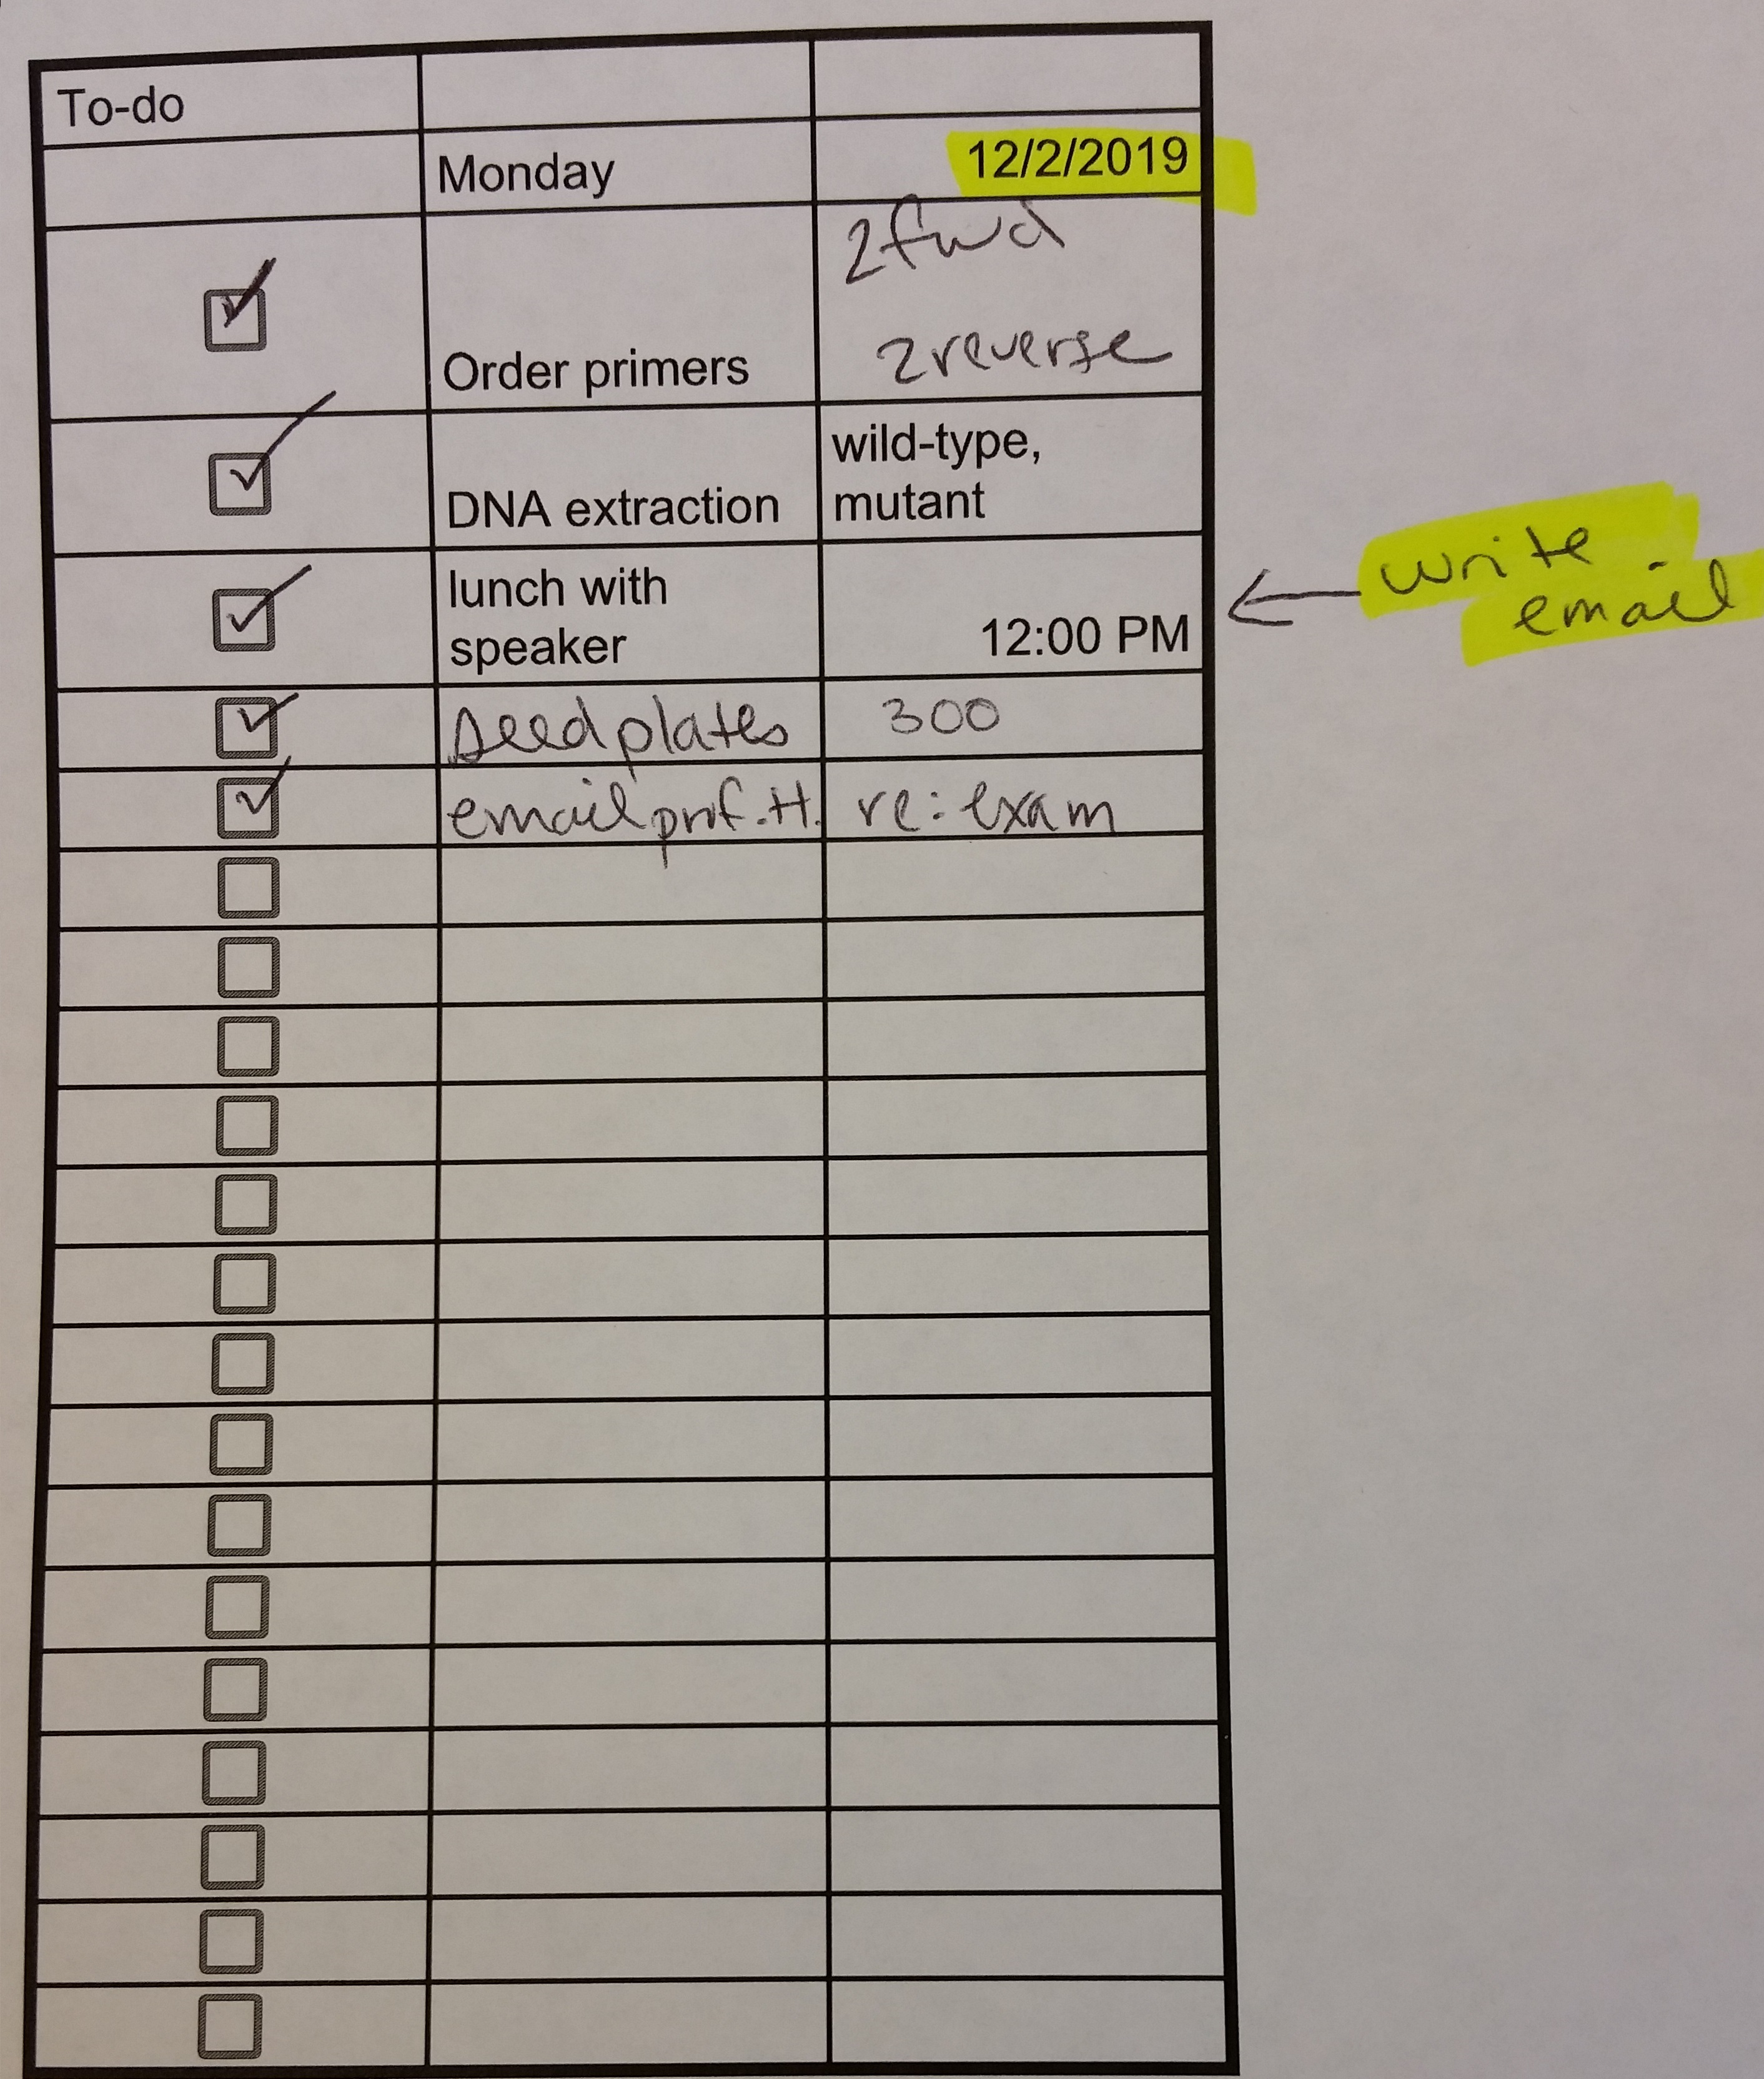 To-do
Monday 12/2/2019
2fwd
2reverse
Order primers
wild-type,
DNA extraction mutant
lunch with
speaker 12:00 PM
write
email
seed plates 300
email prof. H. re: exam